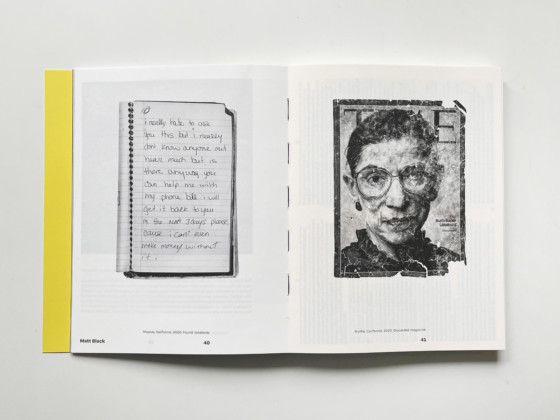 i really hate to ask
you this but i
know anyone out
here much but is
there anyway you
can help me with
my phone bill i will
get it back to you
in the next 3 days please
cause i cant even
make money without
it.
California. 2020. Found notebook.
Matt Black
40
T E
California. 2020. Discarded magazine.
41